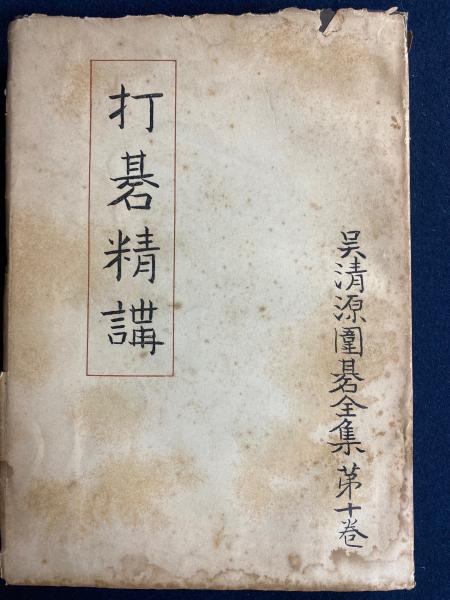 吴清源圍碁全集 第十卷
打碁精講